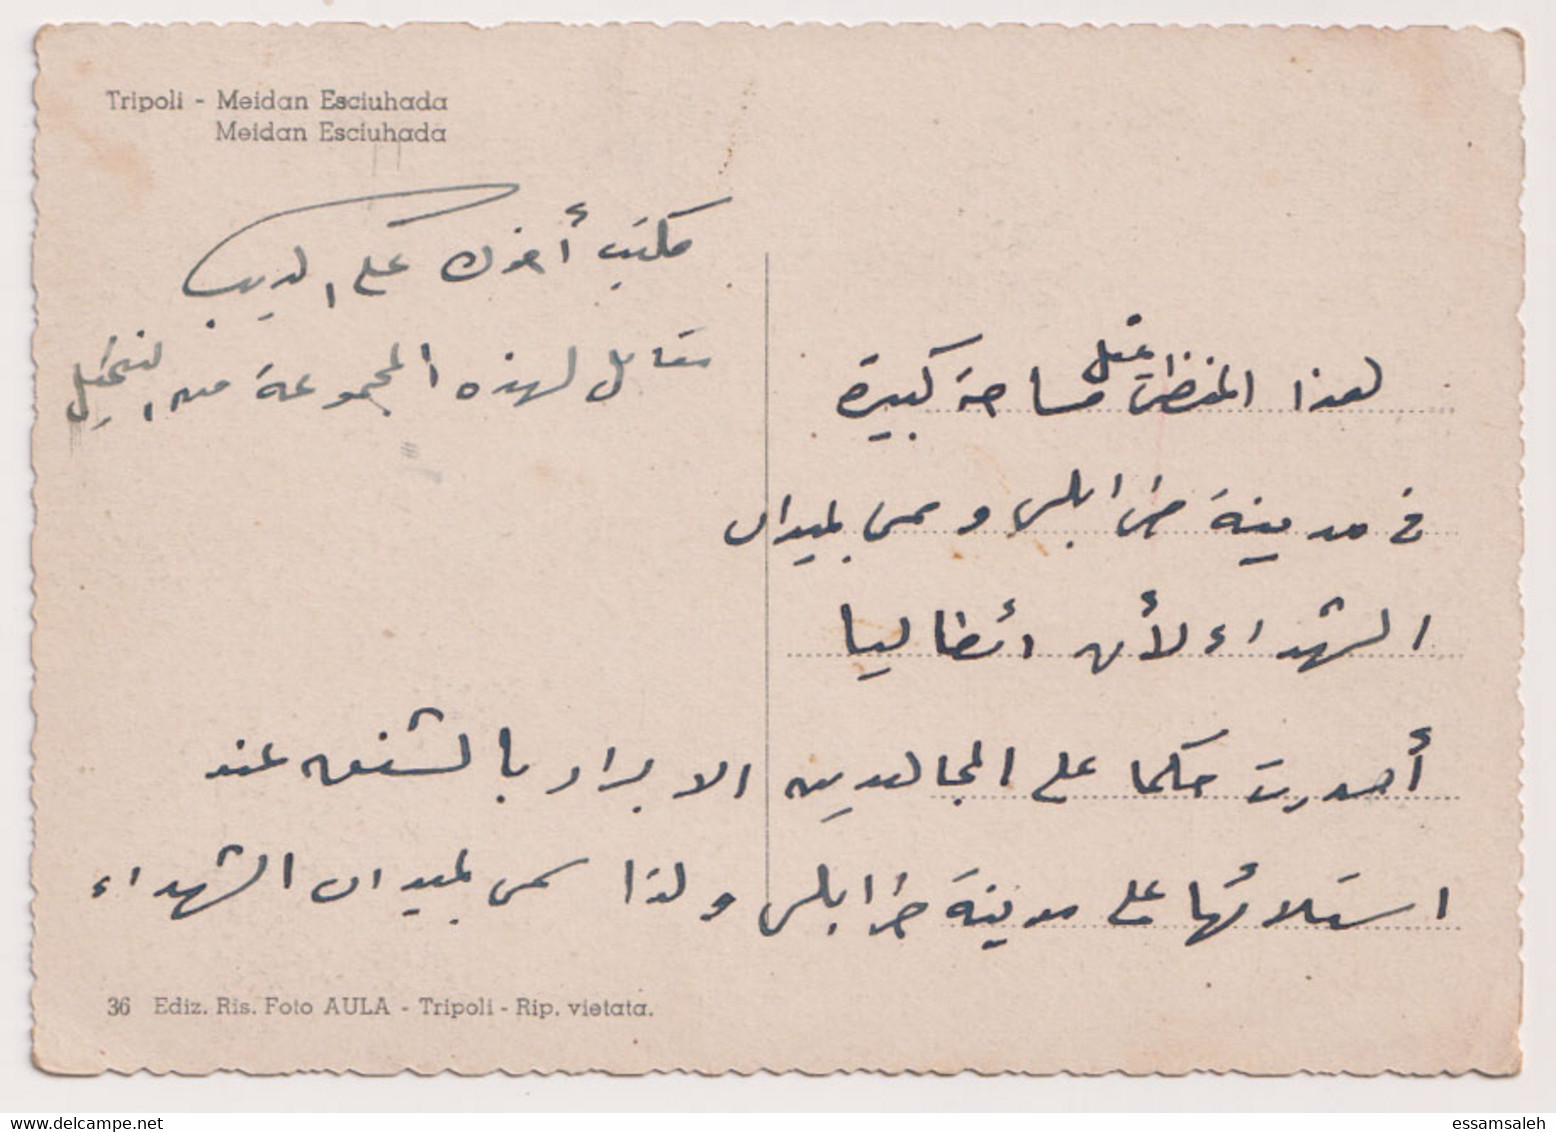 Tripoli - Meidan Esciuhada
Meidan Esciuhada
مكتب أخوك على الديب
مقابل لهذه المجموعة من النخيل
هذا المنظر يمثل مساحة كبيرة
في مدينة طرابلس وسمى بميدان
الشهداء لأن ائطاليا
أصدرت حكما على المجاهدين الابرار بالشنق عند
استلائها على مدينة طرابلس ولذا سمى بميدان الشهداء
36 Ediz. Ris. Foto AULA - Tripoli - Rip. vietata.
www.delcampe.net
essamsaleh